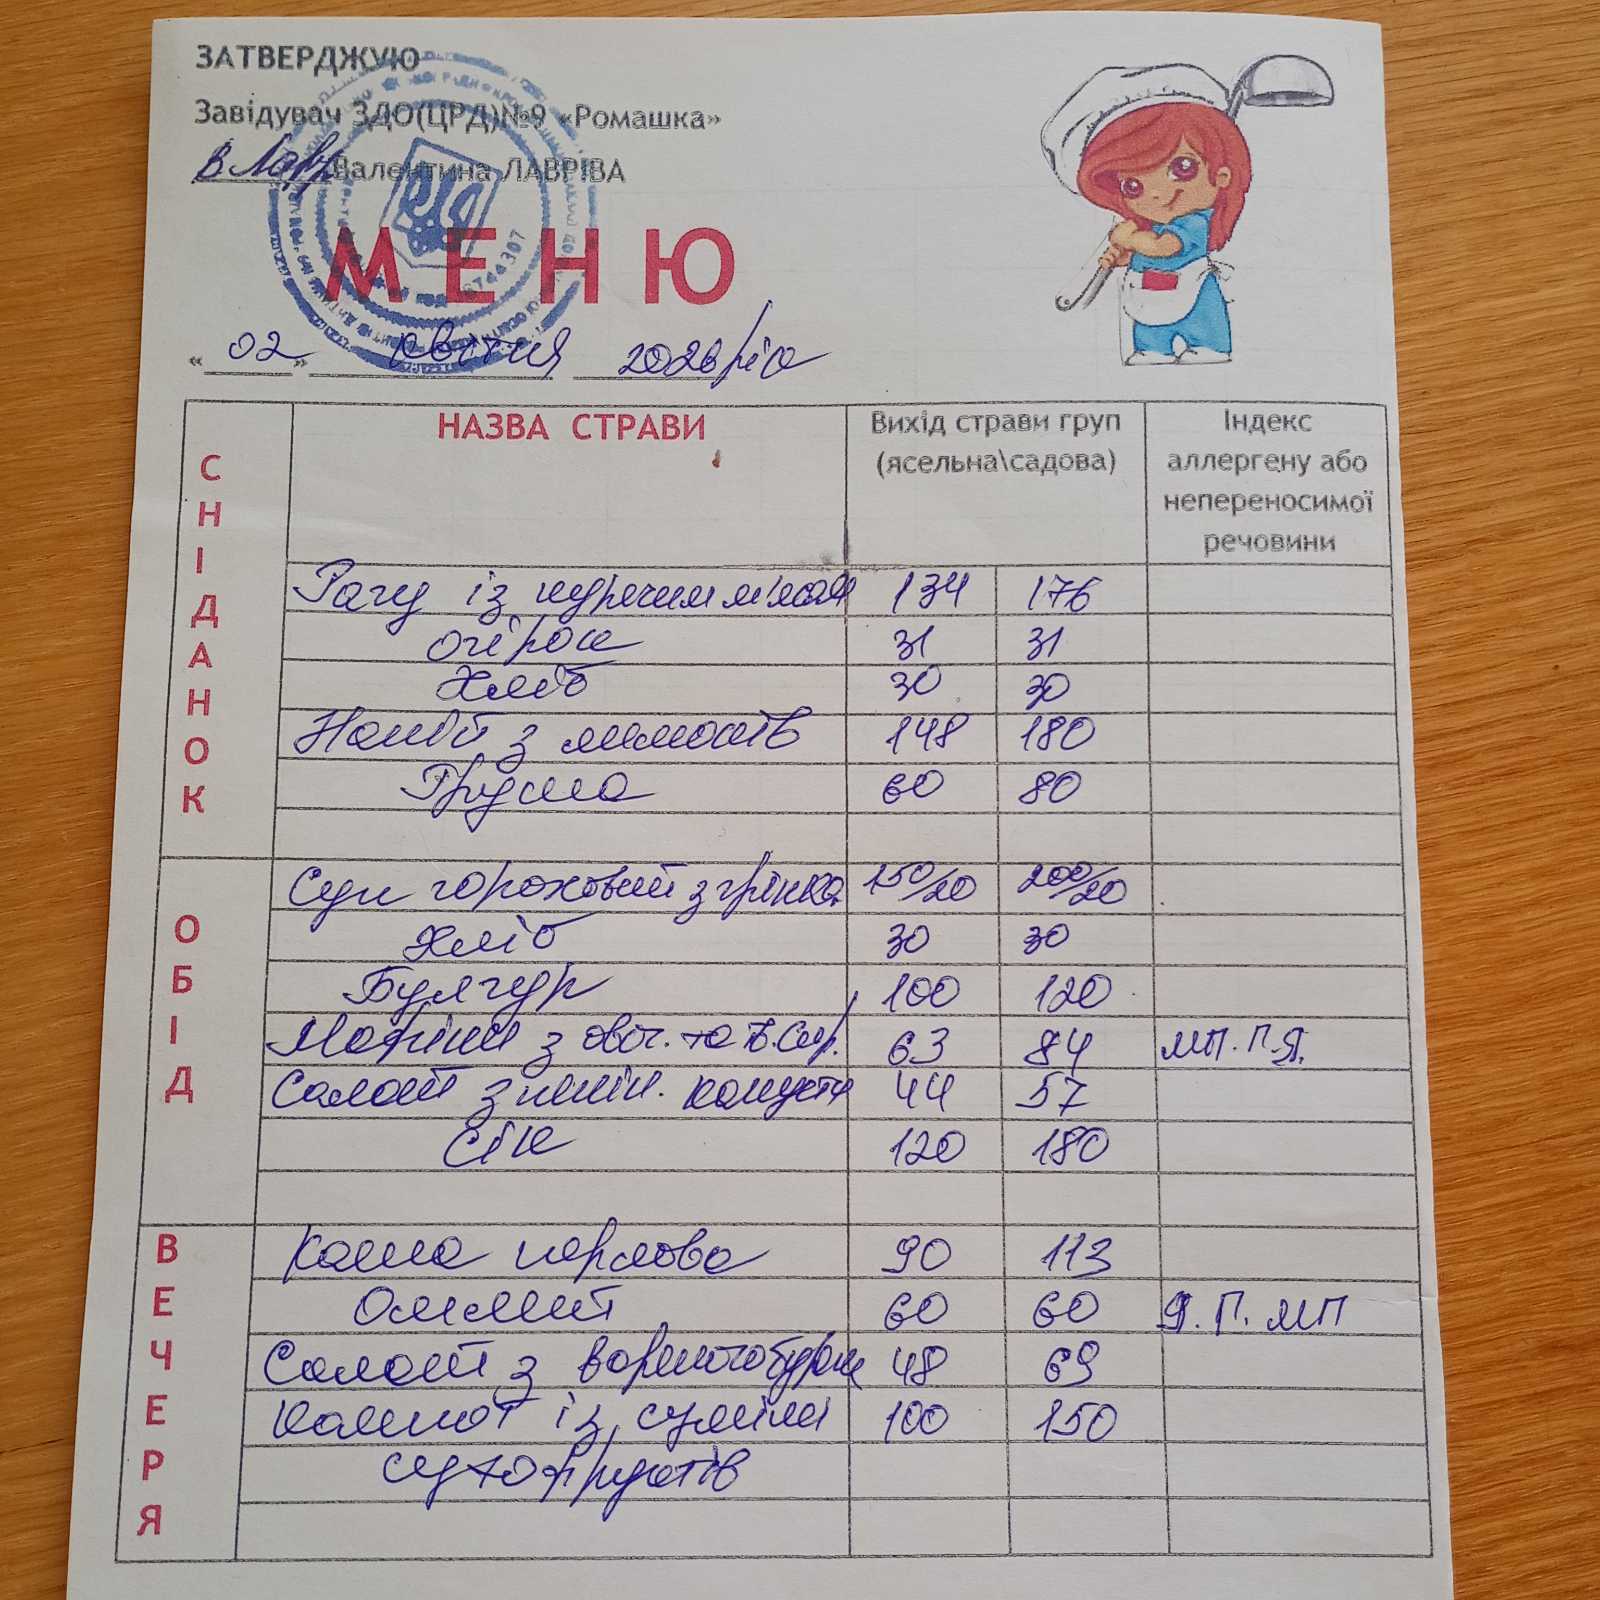 ЗАТВЕРДЖУЮ
Завідувач ЗДО(ЦРД)№9 «Ромашка»
В Лавр Валентина ЛАВРІВА
МЕНЮ
« 02 » квітня 2026 рік
НАЗВА СТРАВИ Вихід страви груп (ясельна\садова) Індекс аллергену або непереносимої речовини
СНІДАНОК
Рагу із курячим м'ясом 134 176
огірок 31 31
Хліб 30 30
Напій з лимонів 148 180
Груша 60 80
ОБІД
Суп гороховий з грінка. 150/20 200/20
Хліб 30 30
Булгур 100 120
з овоч. та тв. сир. 63 84 МП. П. Я.
Салат з пекін. капусти 44 57
Сік 120 180
ВЕЧЕРЯ
Каша перлова 90 113
Омлет 60 60 Я. П. МП
Салат з вареного буряк 48 69
Компот із суміші 100 150
сухофруктів